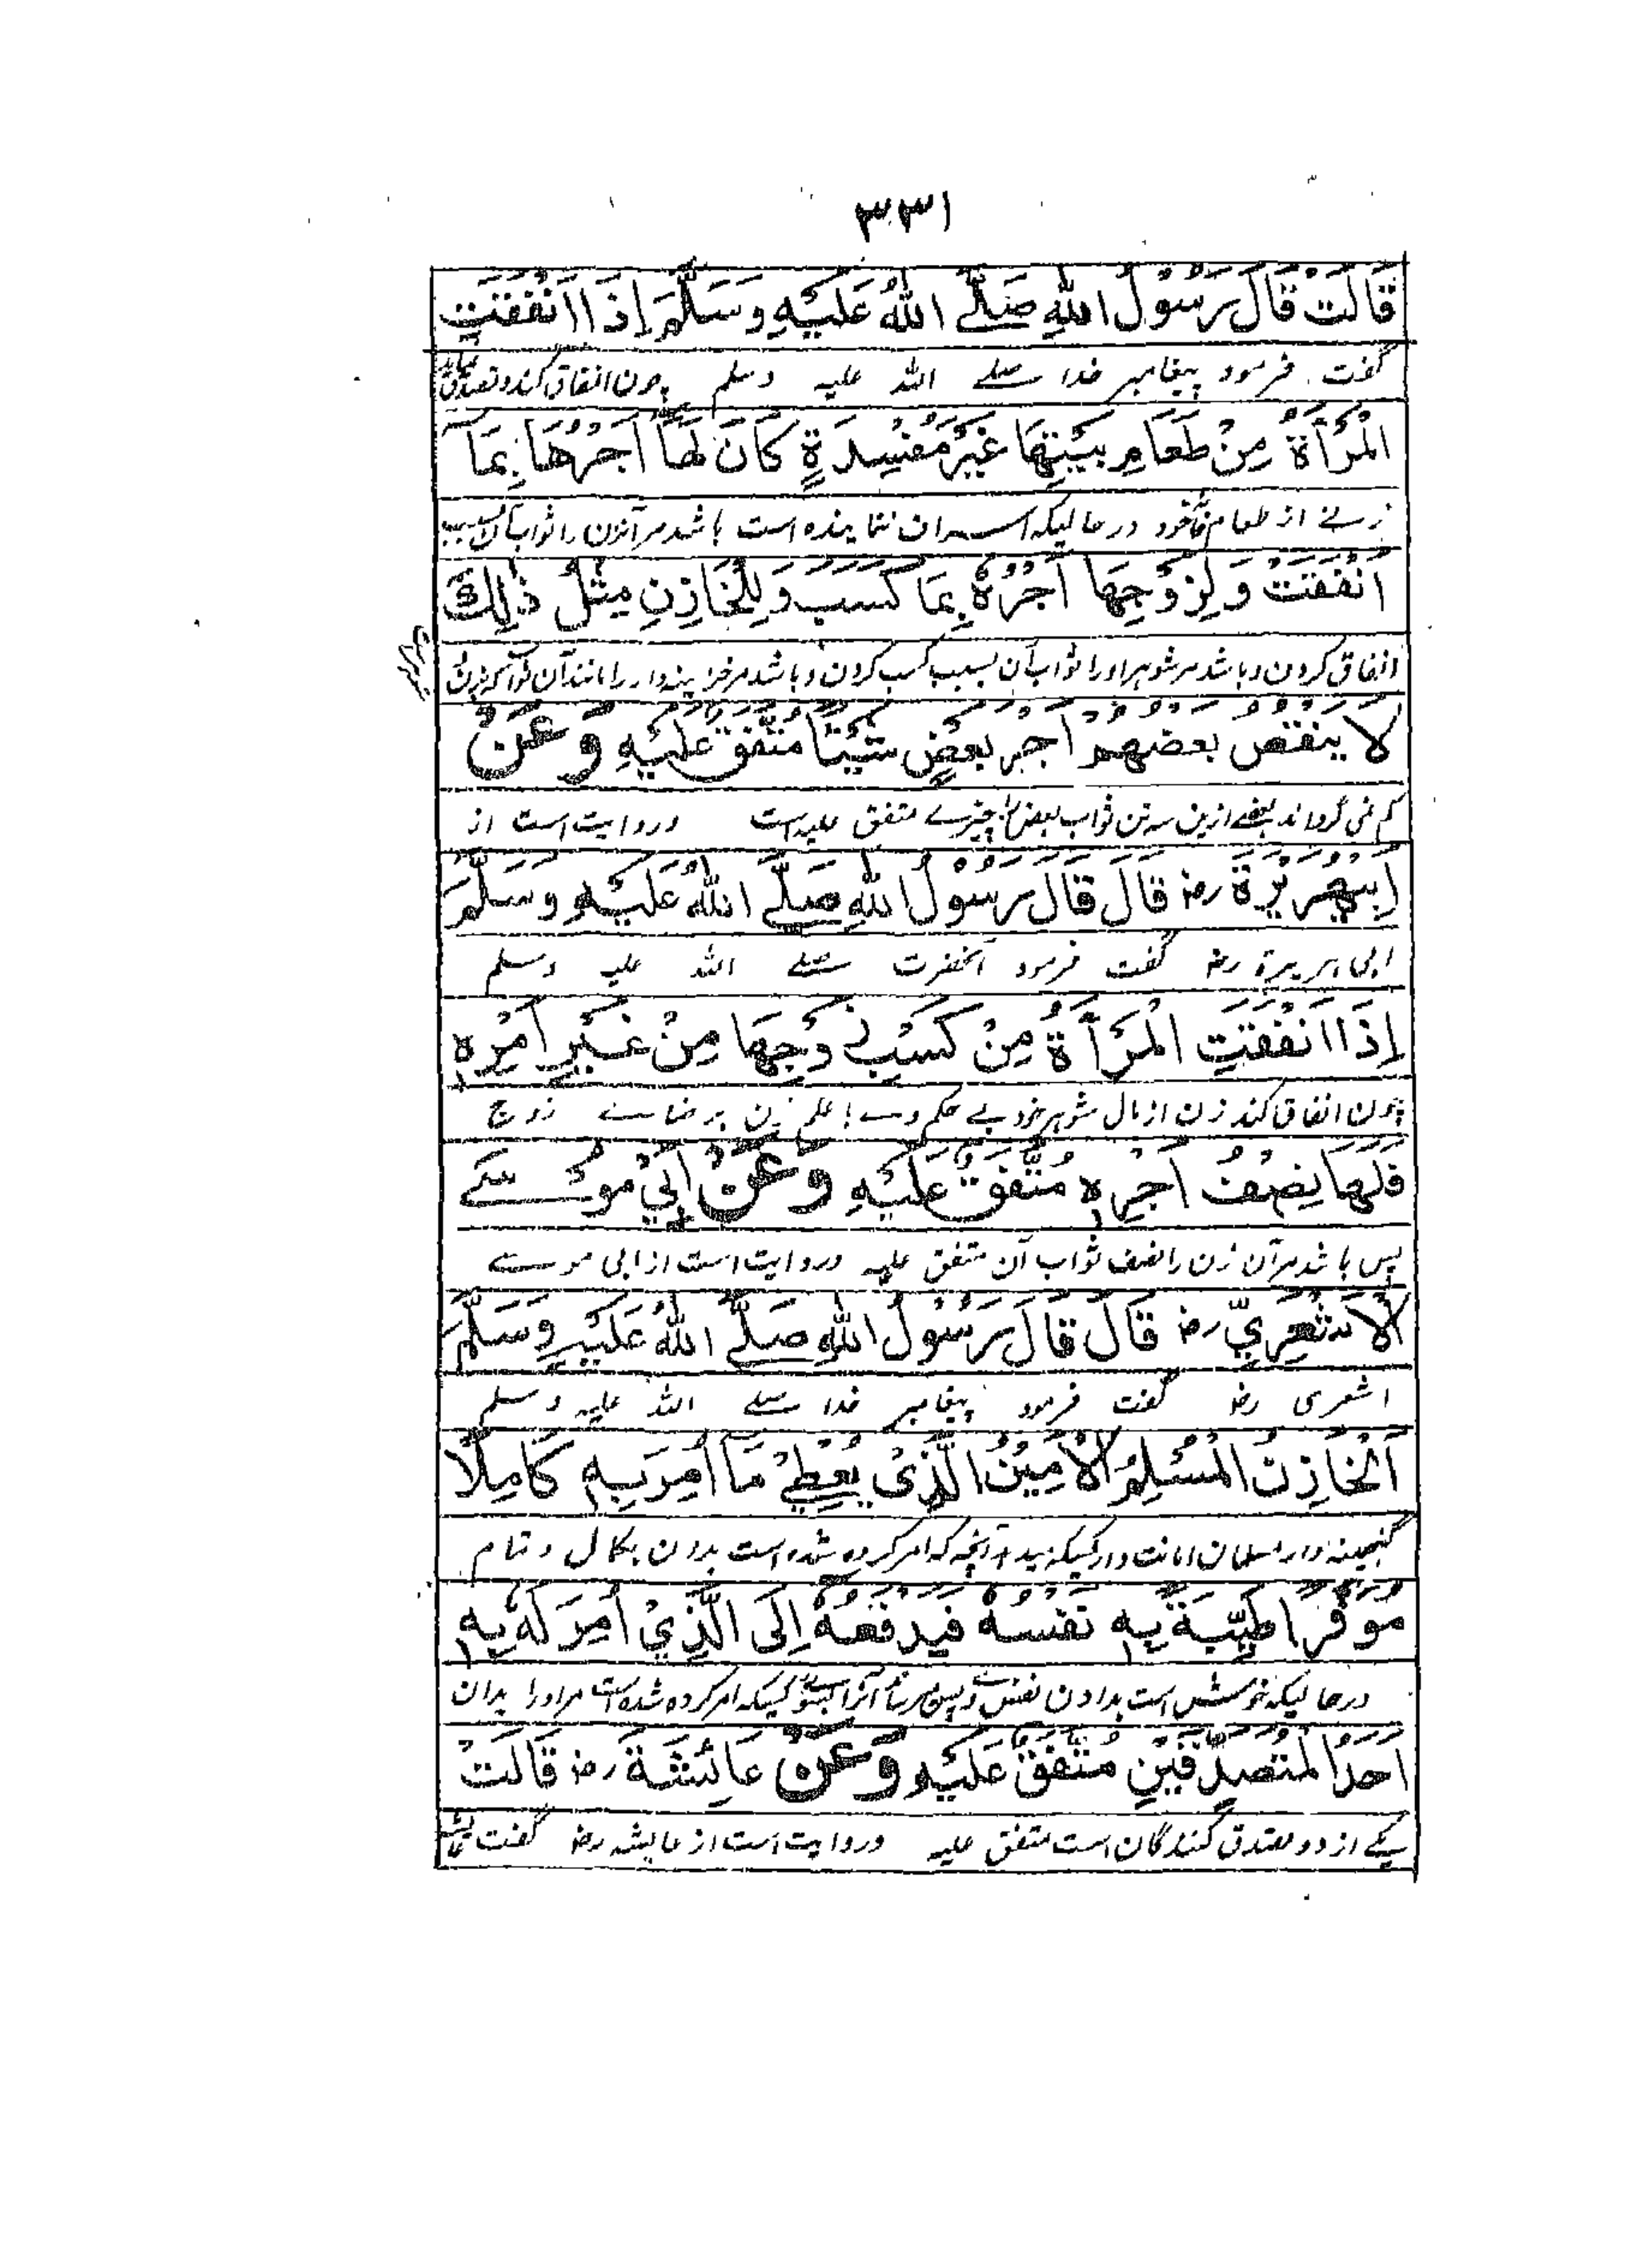 ۳۳۱
قَالَتْ قَالَ رَسُوْلُ اللهِ صَلَّے اللهُ عَلَيْهِ وَسَلَّمَ اِذَا اَنْفَقَتِ
گفت فرمود پیغامبر خدا صلے اللہ علیہ وسلم چون انفاق کند و تصدق نماید
الْمَرْأَةُ مِنْ طَعَامِ بَيْتِهَا غَيْرَ مُفْسِدَةٍ كَانَ لَهَا اَجْرُهَا بِمَا
زنے از طعام خود در حالیکہ اسراف ننمایندہ است باشد مر آنزن را ثواب آن بسبب
اَنْفَقَتْ وَلِزَوْجِهَا اَجْرُهٗ بِمَا كَسَبَ وَلِلْخَازِنِ مِثْلُ ذٰلِكَ
انفاق کردن و باشد مر شوہر او را ثواب آن بسبب کسب کردن و باشد مر خزینہ دار را مانند آن
لَا يَنْقُصُ بَعْضُهُمْ اَجْرَ بَعْضٍ شَيْئًا مُتَّفَقٌ عَلَيْهِ وَعَنْ
کم نمی گرداند بعضے ازین سہ تن ثواب بعض را چیزے متفق علیہ است و روایت است از
اَبِيْهُرَيْرَةَ رضـ قَالَ قَالَ رَسُوْلُ اللهِ صَلَّے اللهُ عَلَيْهِ وَسَلَّمَ
ابی ہریرة رضـ گفت فرمود آنحضرت صلے اللہ علیہ وسلم
اِذَا اَنْفَقَتِ الْمَرْأَةُ مِنْ كَسْبِ زَوْجِهَا مِنْ غَيْرِ اَمْرِهٖ
چون انفاق کند زن از مال شوہر خود بے حکم وے با علم زن برضاے زوج
فَلَهَا نِصْفُ اَجْرِهٖ مُتَّفَقٌ عَلَيْهِ وَعَنْ اَبِيْ مُوْسٰے
پس باشد مر آن زن را نصف ثواب آن متفق علیہ و روایت است از ابی موسے
الْاَشْعَرِيِّ رضـ قَالَ قَالَ رَسُوْلُ اللهِ صَلَّے اللهُ عَلَيْهِ وَسَلَّمَ
اشعری رضـ گفت فرمود پیغامبر خدا صلے اللہ علیہ وسلم
اَلْخَازِنُ الْمُسْلِمُ الْاَمِيْنُ الَّذِیْ يُعْطِیْ مَا اُمِرَ بِهٖ كَامِلًا
گنجینہ دار مسلمان امانت دار کسیکہ بدہد آنچہ کہ امر کردہ شدہ است بدان بکمال و تمام
مُوَفَّرًا طَيِّبَةً بِهٖ نَفْسُهٗ فَيَدْفَعُهٗ اِلَى الَّذِيْ اُمِرَ لَهٗ بِهٖ
در حالیکہ خوش است بدادن نفس وے پس آنرا بسوے کسیکہ امر کردہ شدہ است مر او را بدان
اَحَدُ الْمُتَصَدِّقَيْنِ مُتَّفَقٌ عَلَيْهِ وَعَنْ عَائِشَةَ رضـ قَالَتْ
یکے از دو تصدق کنندگان است متفق علیہ و روایت است از عایشہ رضـ گفت